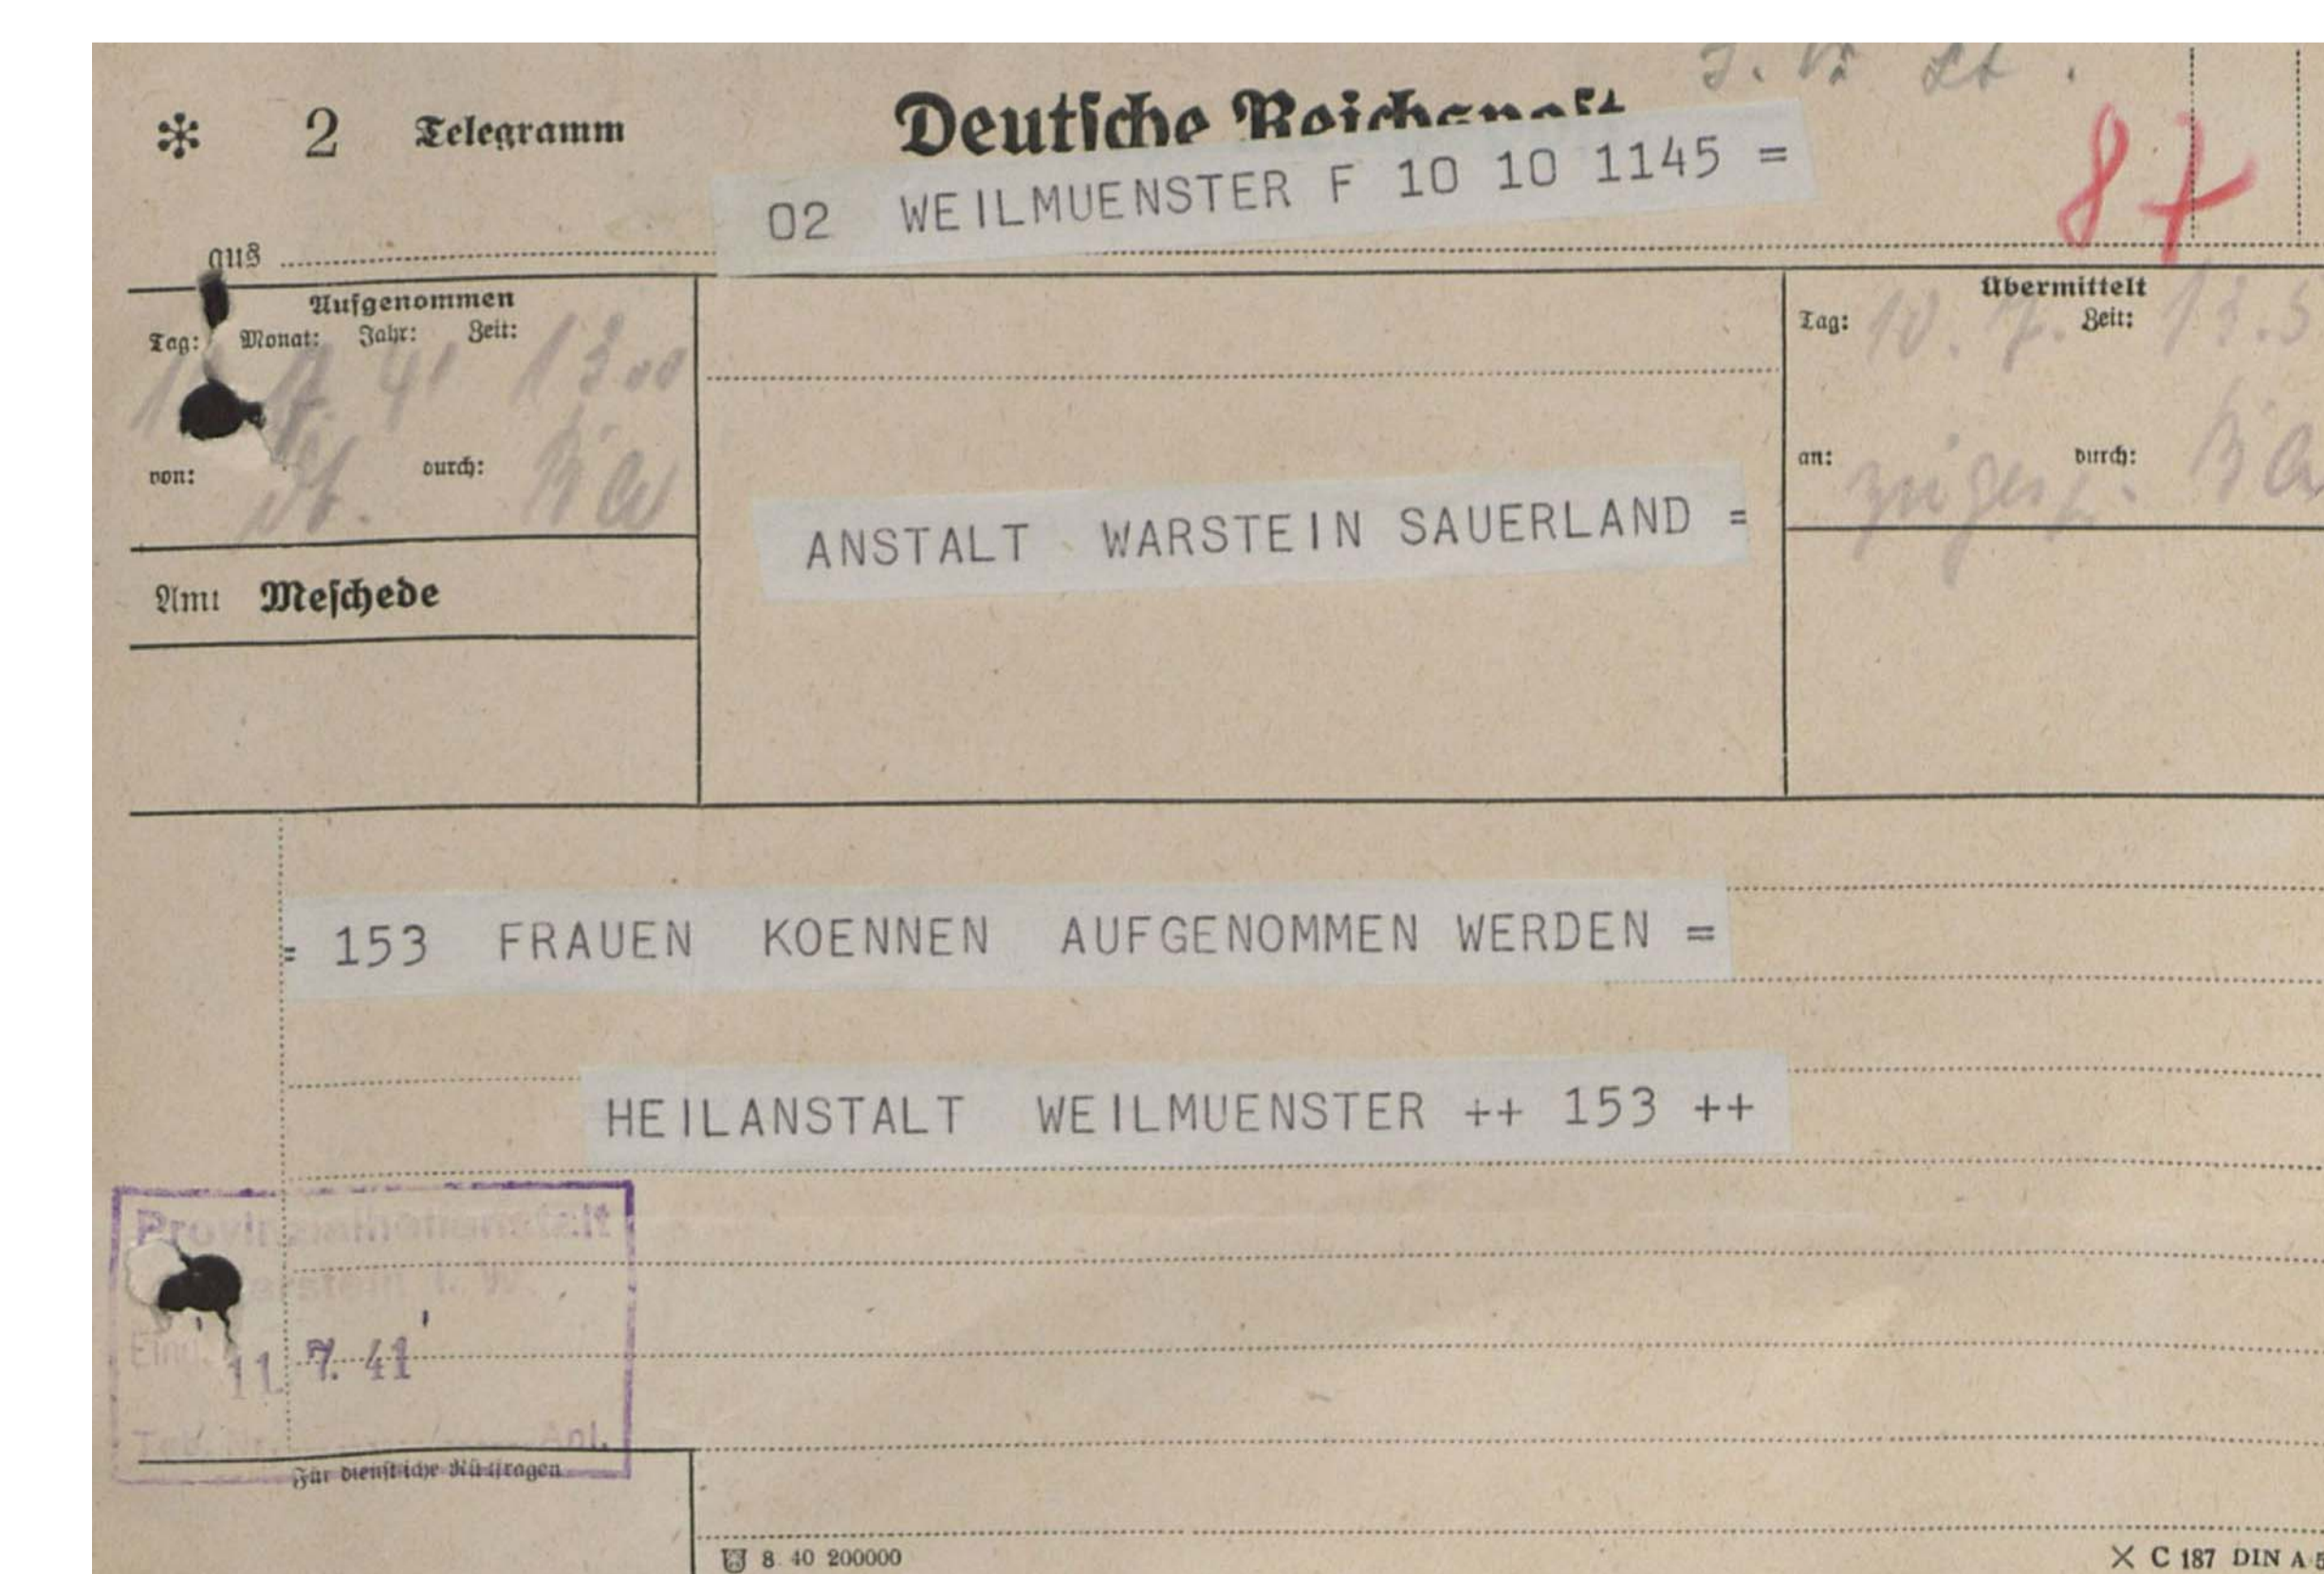 2 Telegramm
Deutsche Reichspost
87
02 WEILMUENSTER F 10 10 1145 =
aus
Aufgenommen
Tag: Monat: Jahr: Zeit:
7. 41 13 00
von: durch:
Übermittelt
Tag: 10. 7. Zeit: 13.5
an: durch:
ANSTALT WARSTEIN SAUERLAND =
Amt Meschede
= 153 FRAUEN KOENNEN AUFGENOMMEN WERDEN =
HEILANSTALT WEILMUENSTER ++ 153 ++
Provinzialheilanstalt
Warstein i. W.
Eing. 11. 7. 41
Tgb. Nr. Anl.
Für dienstliche Rückfragen
8. 40 200000
C 187 DIN A 5